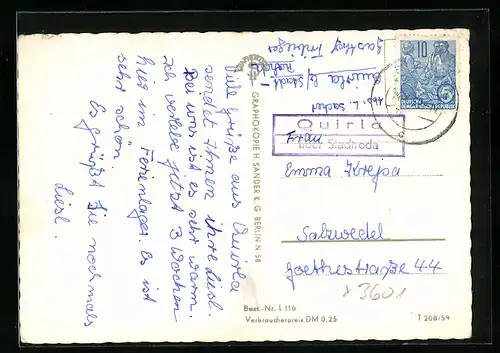 Viele Grüße aus Quirla
sendet Ihnen ihre Liesl.
Bei uns ist es sehr warm.
Ich verlebe jetzt 3 Wochen
hier im Ferienlager. Es ist
sehr schön.
Es grüßt Sie nochmals
Liesl.
GRAPHOKOPIE H. SANDER K. G. BERLIN N 58
Abs. L. Sacher
Quirla b/ Stadt-
roda
Gasthof
10
DEUTSCHE
DEMOKRATISCHE REPUBLIK
5
Quirla
über Stadtroda
Frau
Emma Krejpa
Salzwedel
Goethestraße 44
x 3601
Best.-Nr. L 116
Verbraucherpreis DM 0,25
T 208/59